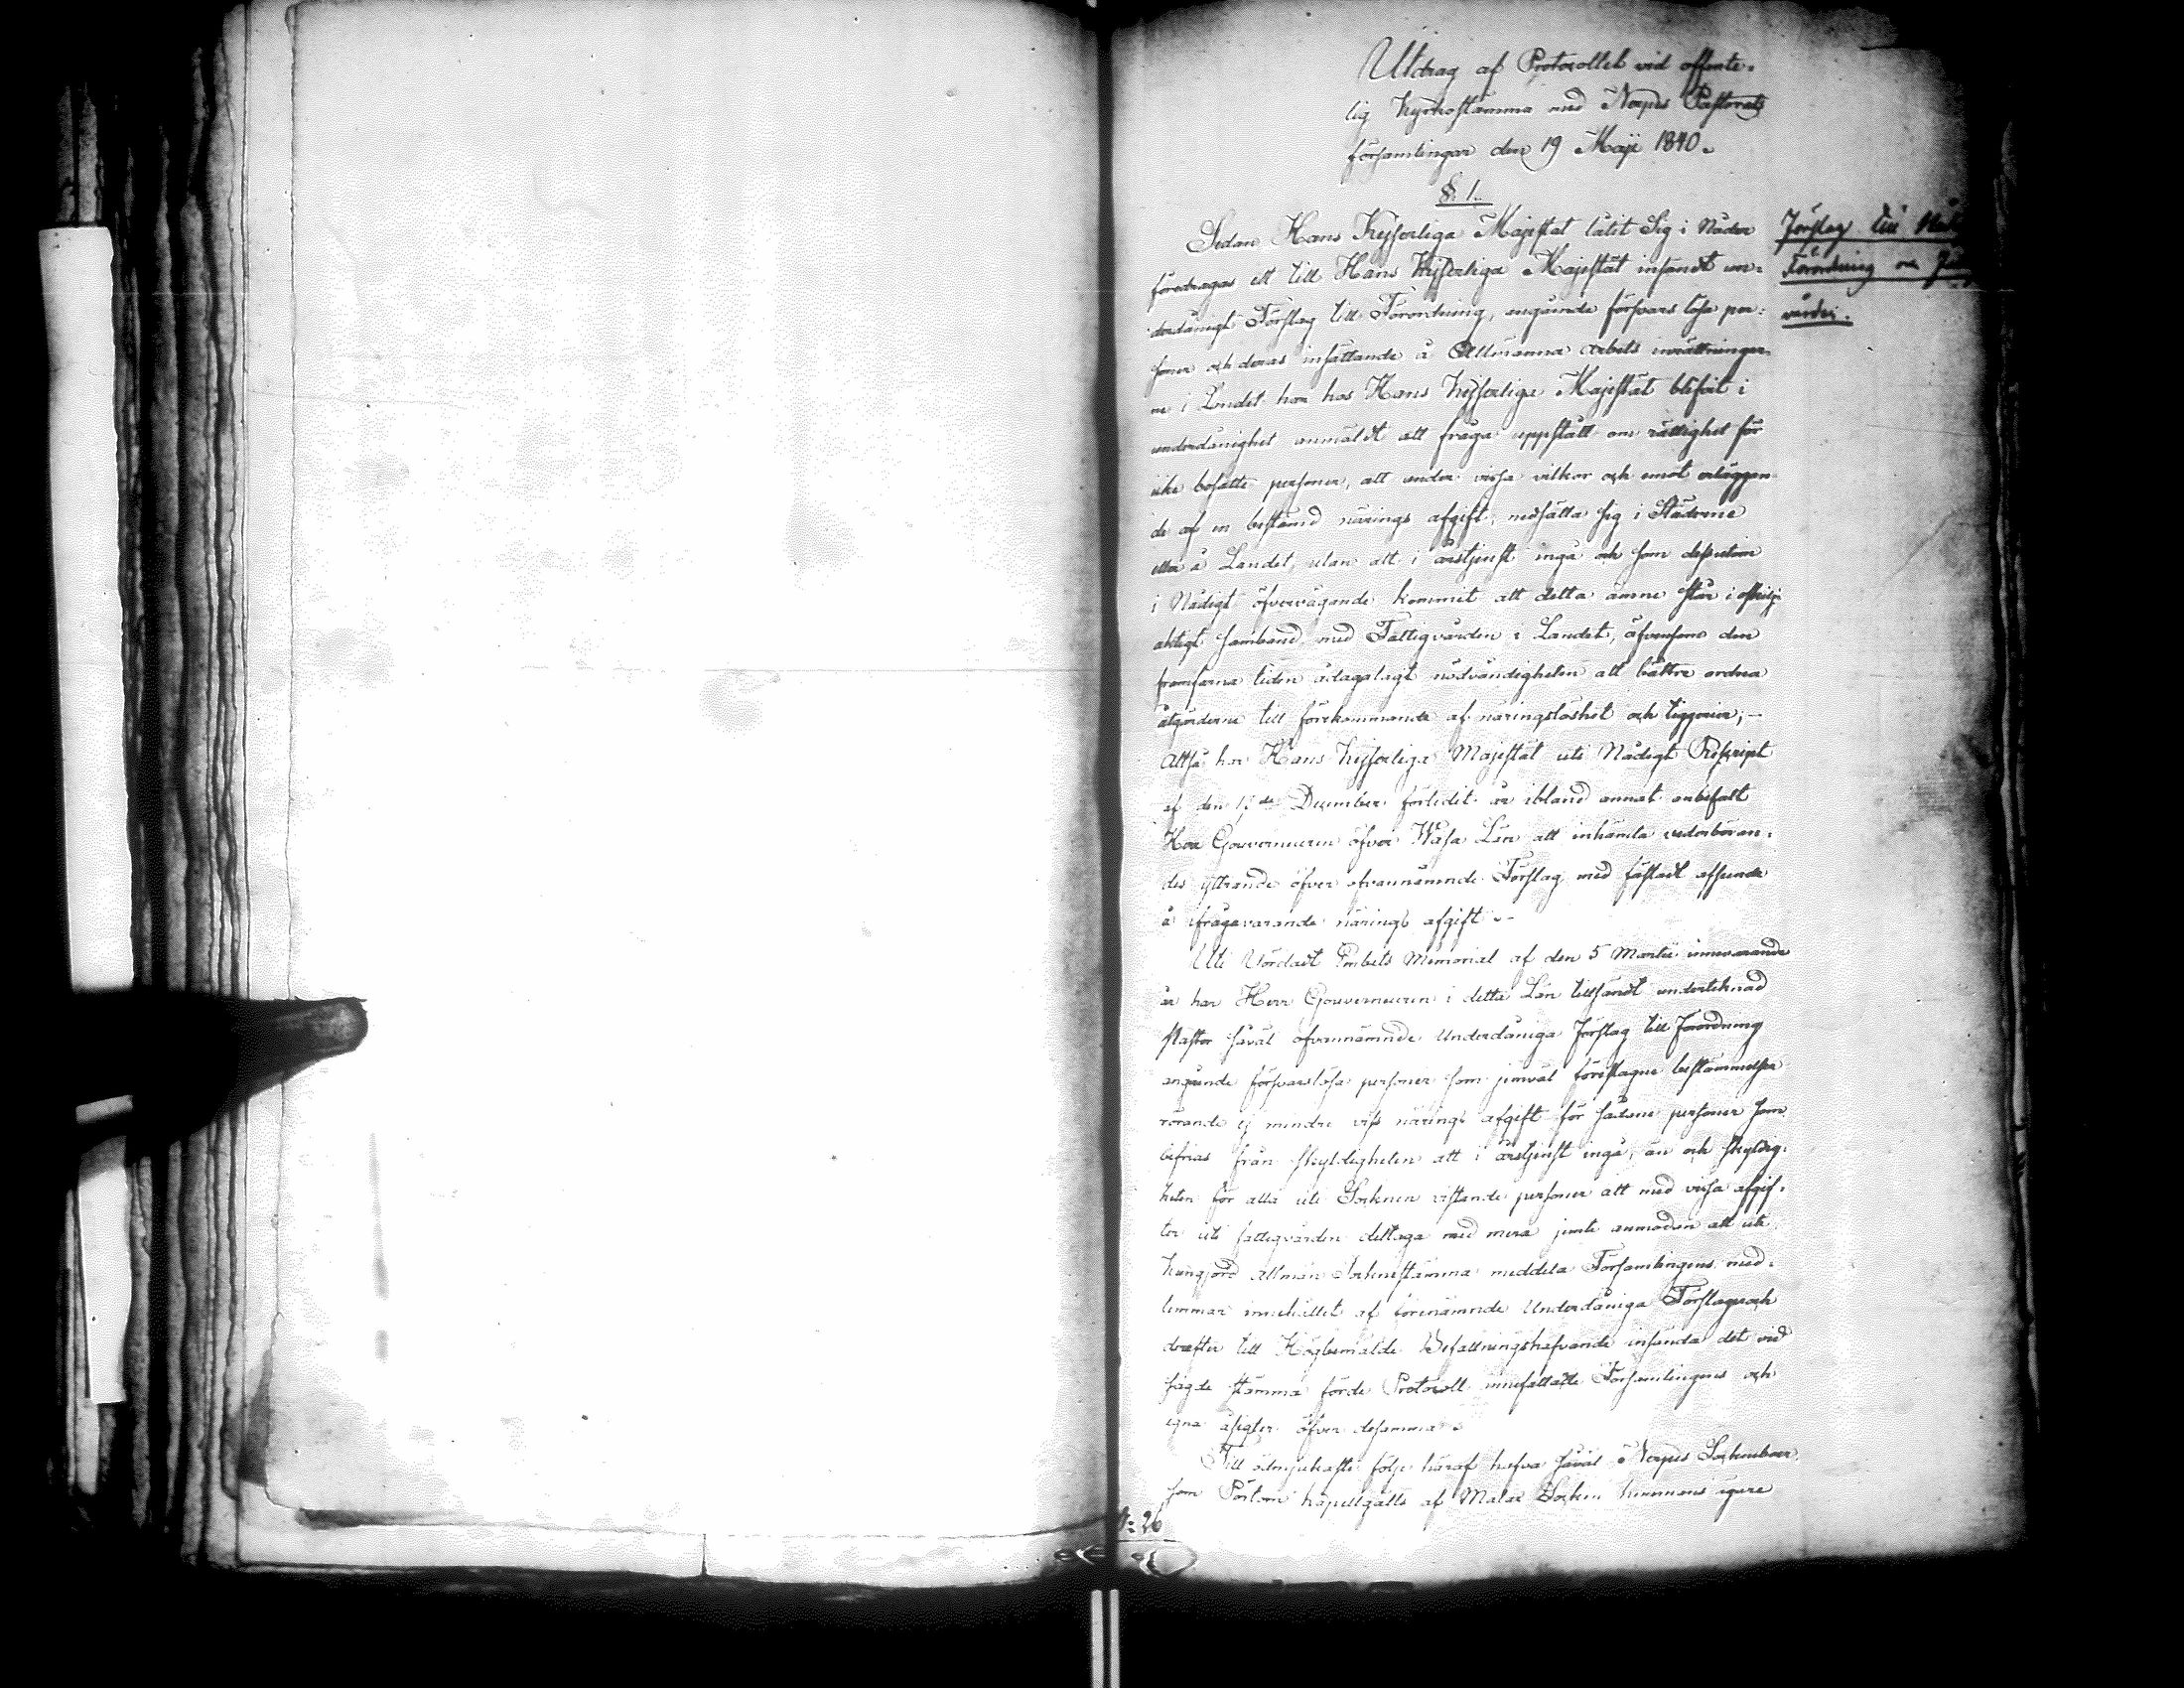 Utdrag af Protocollet vid offente-
lig Kyrkostämma med Nerpes Pastorats
församlingar den 19 Maji 1840.
§. 1.
Sedan Hans Kejserliga Majestät låtit Sig i Nåder
föredragas ett till Hans Kejserliga Majestät insändt un-
derdånigt Förslag till Förordning, angående försvarslösa per-
soner och deras insättande å Allmänna arbets inrättningar-
ne i Landet har hos Hans Kejserliga Majestät blifvit i
underdånighet anmäldt att fråga uppstått om rättighet för
icke besatte personer, att under vissa vilkor och emot erläggan-
de af en bestämd närings afgift, nedsätta sig i Städerne
eller å Landet, utan att i årstjenst ingå och som dessutom
i Nådigt öfvervägande kommit att detta ämne står i
aktigt samband med Fattigvården i Landet, äfvensom den
framfarna tiden ådagalagt nödvändigheten att bättre ordna
åtgärderne till förekommande af näringslöshet och tiggeri;-
Altså har Hans Kejserliga Majestät uti Nådigt Reskript
af den December förledit år ibland annat anbefalt
Herr Gouverneuren öfver Wasa Län att inhämta vederböran-
des yttrande öfver ofvannämnde Förslag med fästadt afseende
å ifrågavarande närings afgift.-
Uti Vördadt Embets Memorial af den 5 Martii innevarande
år har Herr Gouverneuren i detta Län tillsändt undertecknad
Pastor såväl ofvannämnde Underdåniga Förslag till Förordning
angående försvarslösa personer som jemväl föreslagne bestämmelser
rörande ej mindre viss närings afgift för sådane personer som
befrias från skyldigheten att i årstjenst ingå, än och skyldig-
heten för alla uti Socknen vistande personer att med vissa afgif-
ter uti fattigvården deltaga med mera jemte anmodan att uti
kungjord allmän Sockenstämma meddela Församlingens med-
lemmar innehållet af förenämnde Underdåniga Förslager och
derefter till Högbemälde Befallningshafvande insända det vid
sagde stämma förde Protocoll innefattade Församlingens och
egna åsigter öfver desamma.
Till ödmjukaste följe häraf hafva såväl Nerpes Sockneboer,
som Pörtom kapellgälls af Malax Socken hemmans ägare
Förslag till
Förordning om
vården.
N: 26